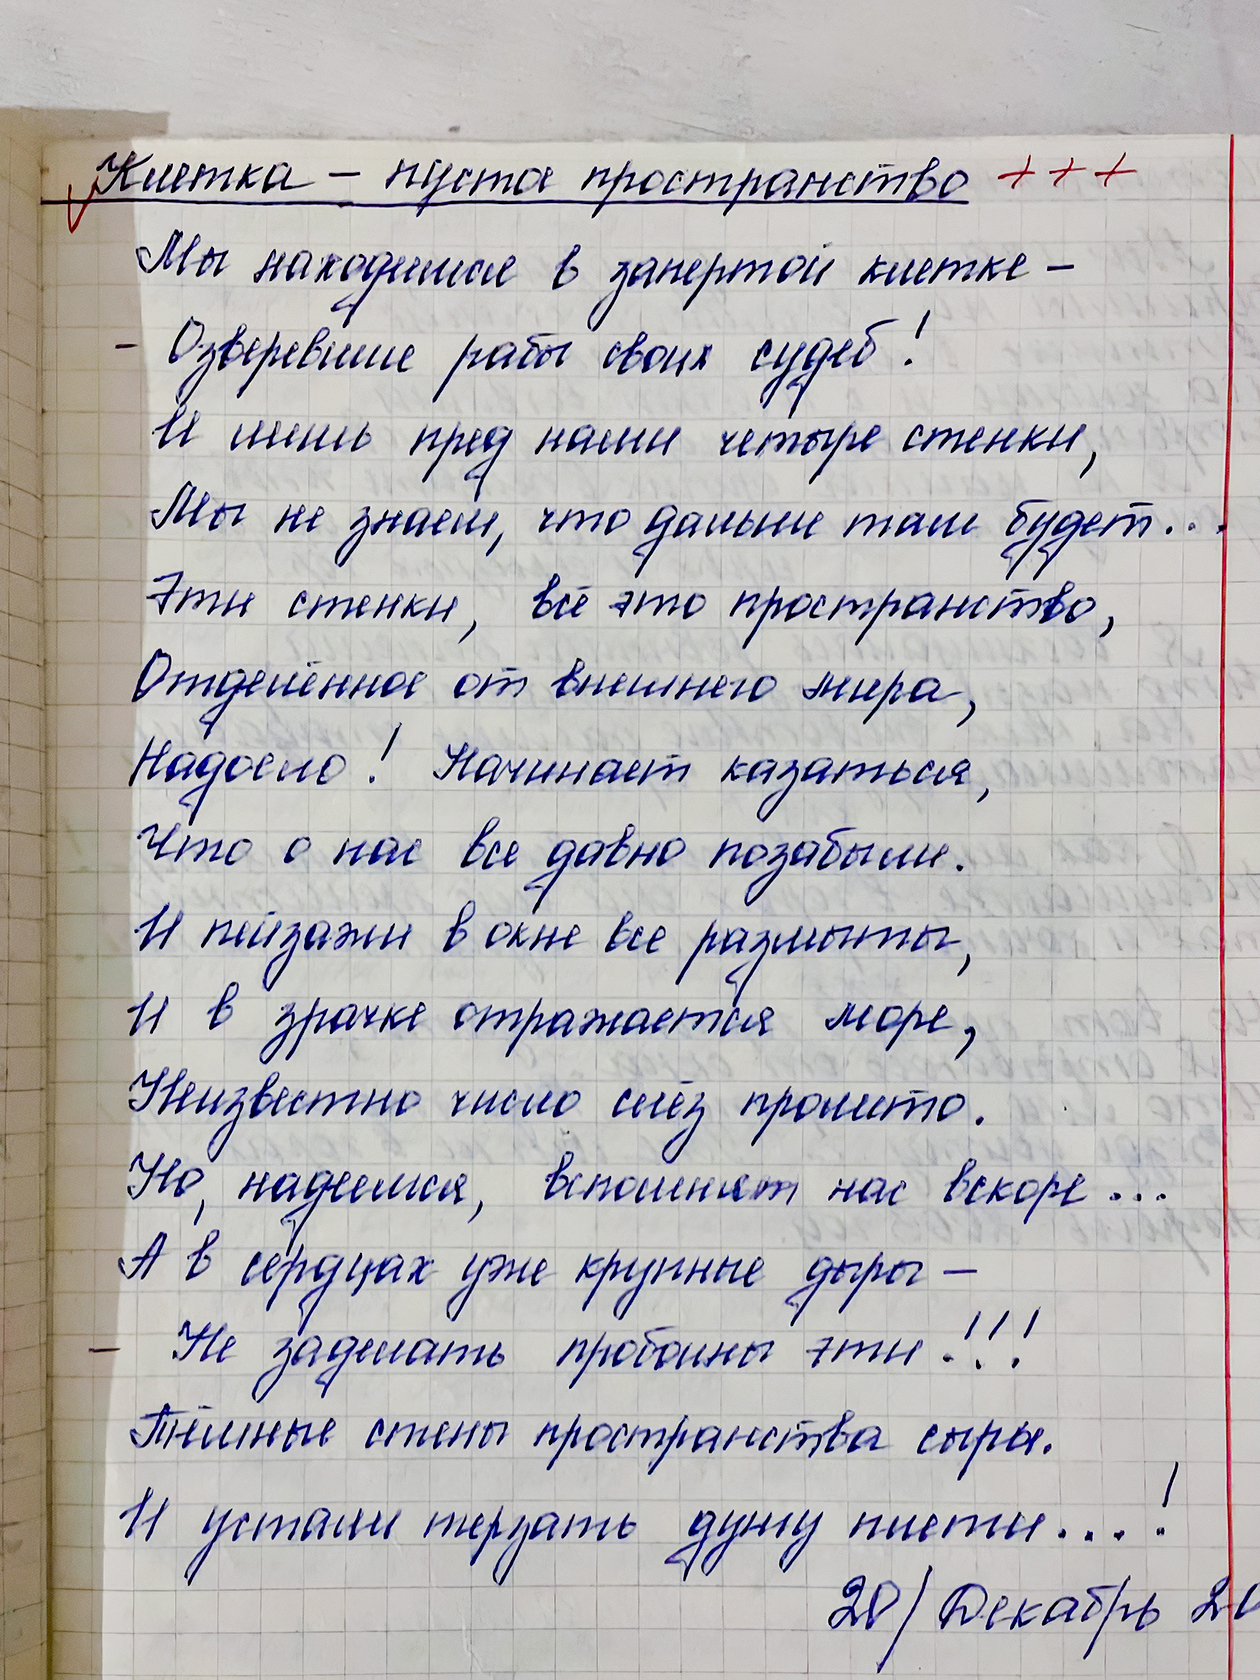 Клетка – пустое пространство + + +
Мы находимся в запертой клетке –
– Озверевшие рабы своих судеб!
И лишь пред нами четыре стенки,
Мы не знаем, что дальше там будет...
Эти стенки, всё это пространство,
Отделённое от внешнего мира,
Надоело! Начинает казаться,
Что о нас все давно позабыли.
И пейзажи в окне все размыты,
И в зрачке отражается море,
Неизвестно число слёз пролито.
Но, надеемся, вспомнят нас вскоре...
А в сердцах уже крупные дыры –
– Не заделать пробоины эти!!!
Тёмные стены пространства сыры.
И устали терзать душу плети...!
20/Декабрь 20